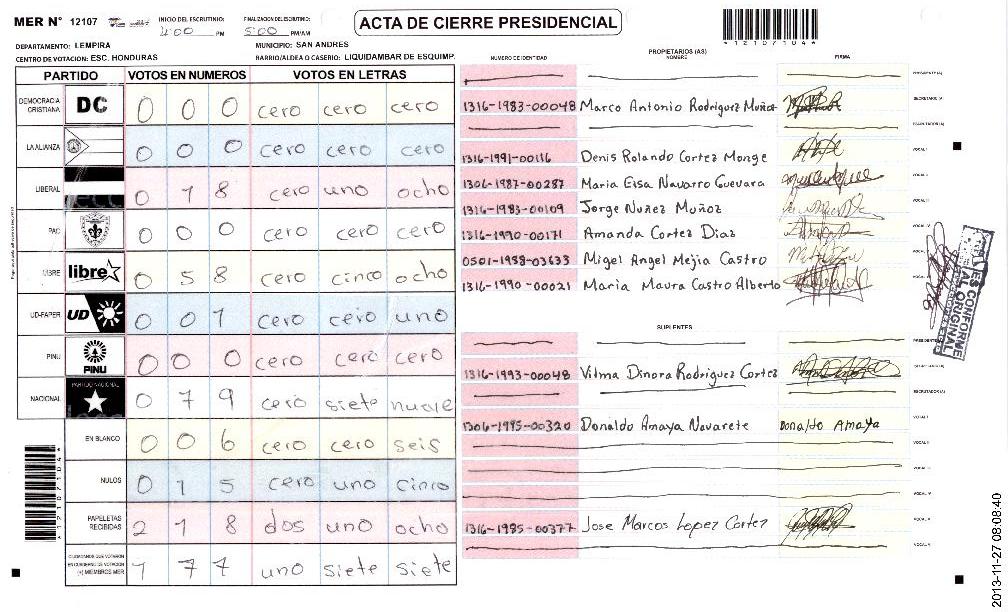 MER N° 12107
INICIO DEL ESCRUTINIO: 4:00 PM
FINALIZACION DEL ESCRUTINIO: 5:00 PM/AM
ACTA DE CIERRE PRESIDENCIAL
*12107104*
DEPARTAMENTO: LEMPIRA
MUNICIPIO: SAN ANDRES
CENTRO DE VOTACION: ESC. HONDURAS
BARRIO/ALDEA O CASERIO: LIQUIDAMBAR DE ESQUIMP.
PARTIDO VOTOS EN NUMEROS VOTOS EN LETRAS
DEMOCRACIA CRISTIANA DC 0 0 0 cero cero cero
LA ALIANZA 0 0 0 cero cero cero
LIBERAL 0 1 8 cero uno ocho
PAC 0 0 0 cero cero cero
LIBRE libre 0 5 8 cero cinco ocho
UD-FAPER UD 0 0 1 cero cero uno
PINU PINU 0 0 0 cero cero cero
NACIONAL PARTIDO NACIONAL 0 7 9 cero siete nueve
EN BLANCO 0 0 6 cero cero seis
NULOS 0 1 5 cero uno cinco
PAPELETAS RECIBIDAS 2 1 8 dos uno ocho
CIUDADANOS QUE VOTARON EN CUADERNO DE VOTACION (+) MIEMBROS MER 1 7 7 uno siete siete
*12107104*
PROPIETARIOS (AS)
NUMERO DE IDENTIDAD NOMBRE FIRMA
PRESIDENTE (A)
1316-1983-00048 Marco Antonio Rodriguez Muñoz SECRETARIO (A)
ESCRUTADOR (A)
1316-1991-00116 Denis Rolando Cortez Monge VOCAL I
1306-1987-00287 Maria Elsa Navarro Guevara VOCAL II
1316-1983-00109 Jorge Nuñez Muñoz VOCAL III
1316-1990-00171 Amanda Cortez Diaz VOCAL IV
0501-1988-03633 Migel Angel Mejia Castro VOCAL V
1316-1990-00021 Maria Maura Castro Alberto
SUPLENTES
PRESIDENTE (A)
1316-1993-00048 Vilma Dinora Rodriguez Cortez SECRETARIO (A)
ESCRUTADOR (A)
1306-1985-00320 Donaldo Amaya Navarete Donaldo Amaya VOCAL I
VOCAL II
VOCAL III
VOCAL IV
1316-1985-00377 Jose Marcos Lopez Cortez VOCAL V
ES CONFORME
AL ORIGINAL
2013-11-27 08:08:40